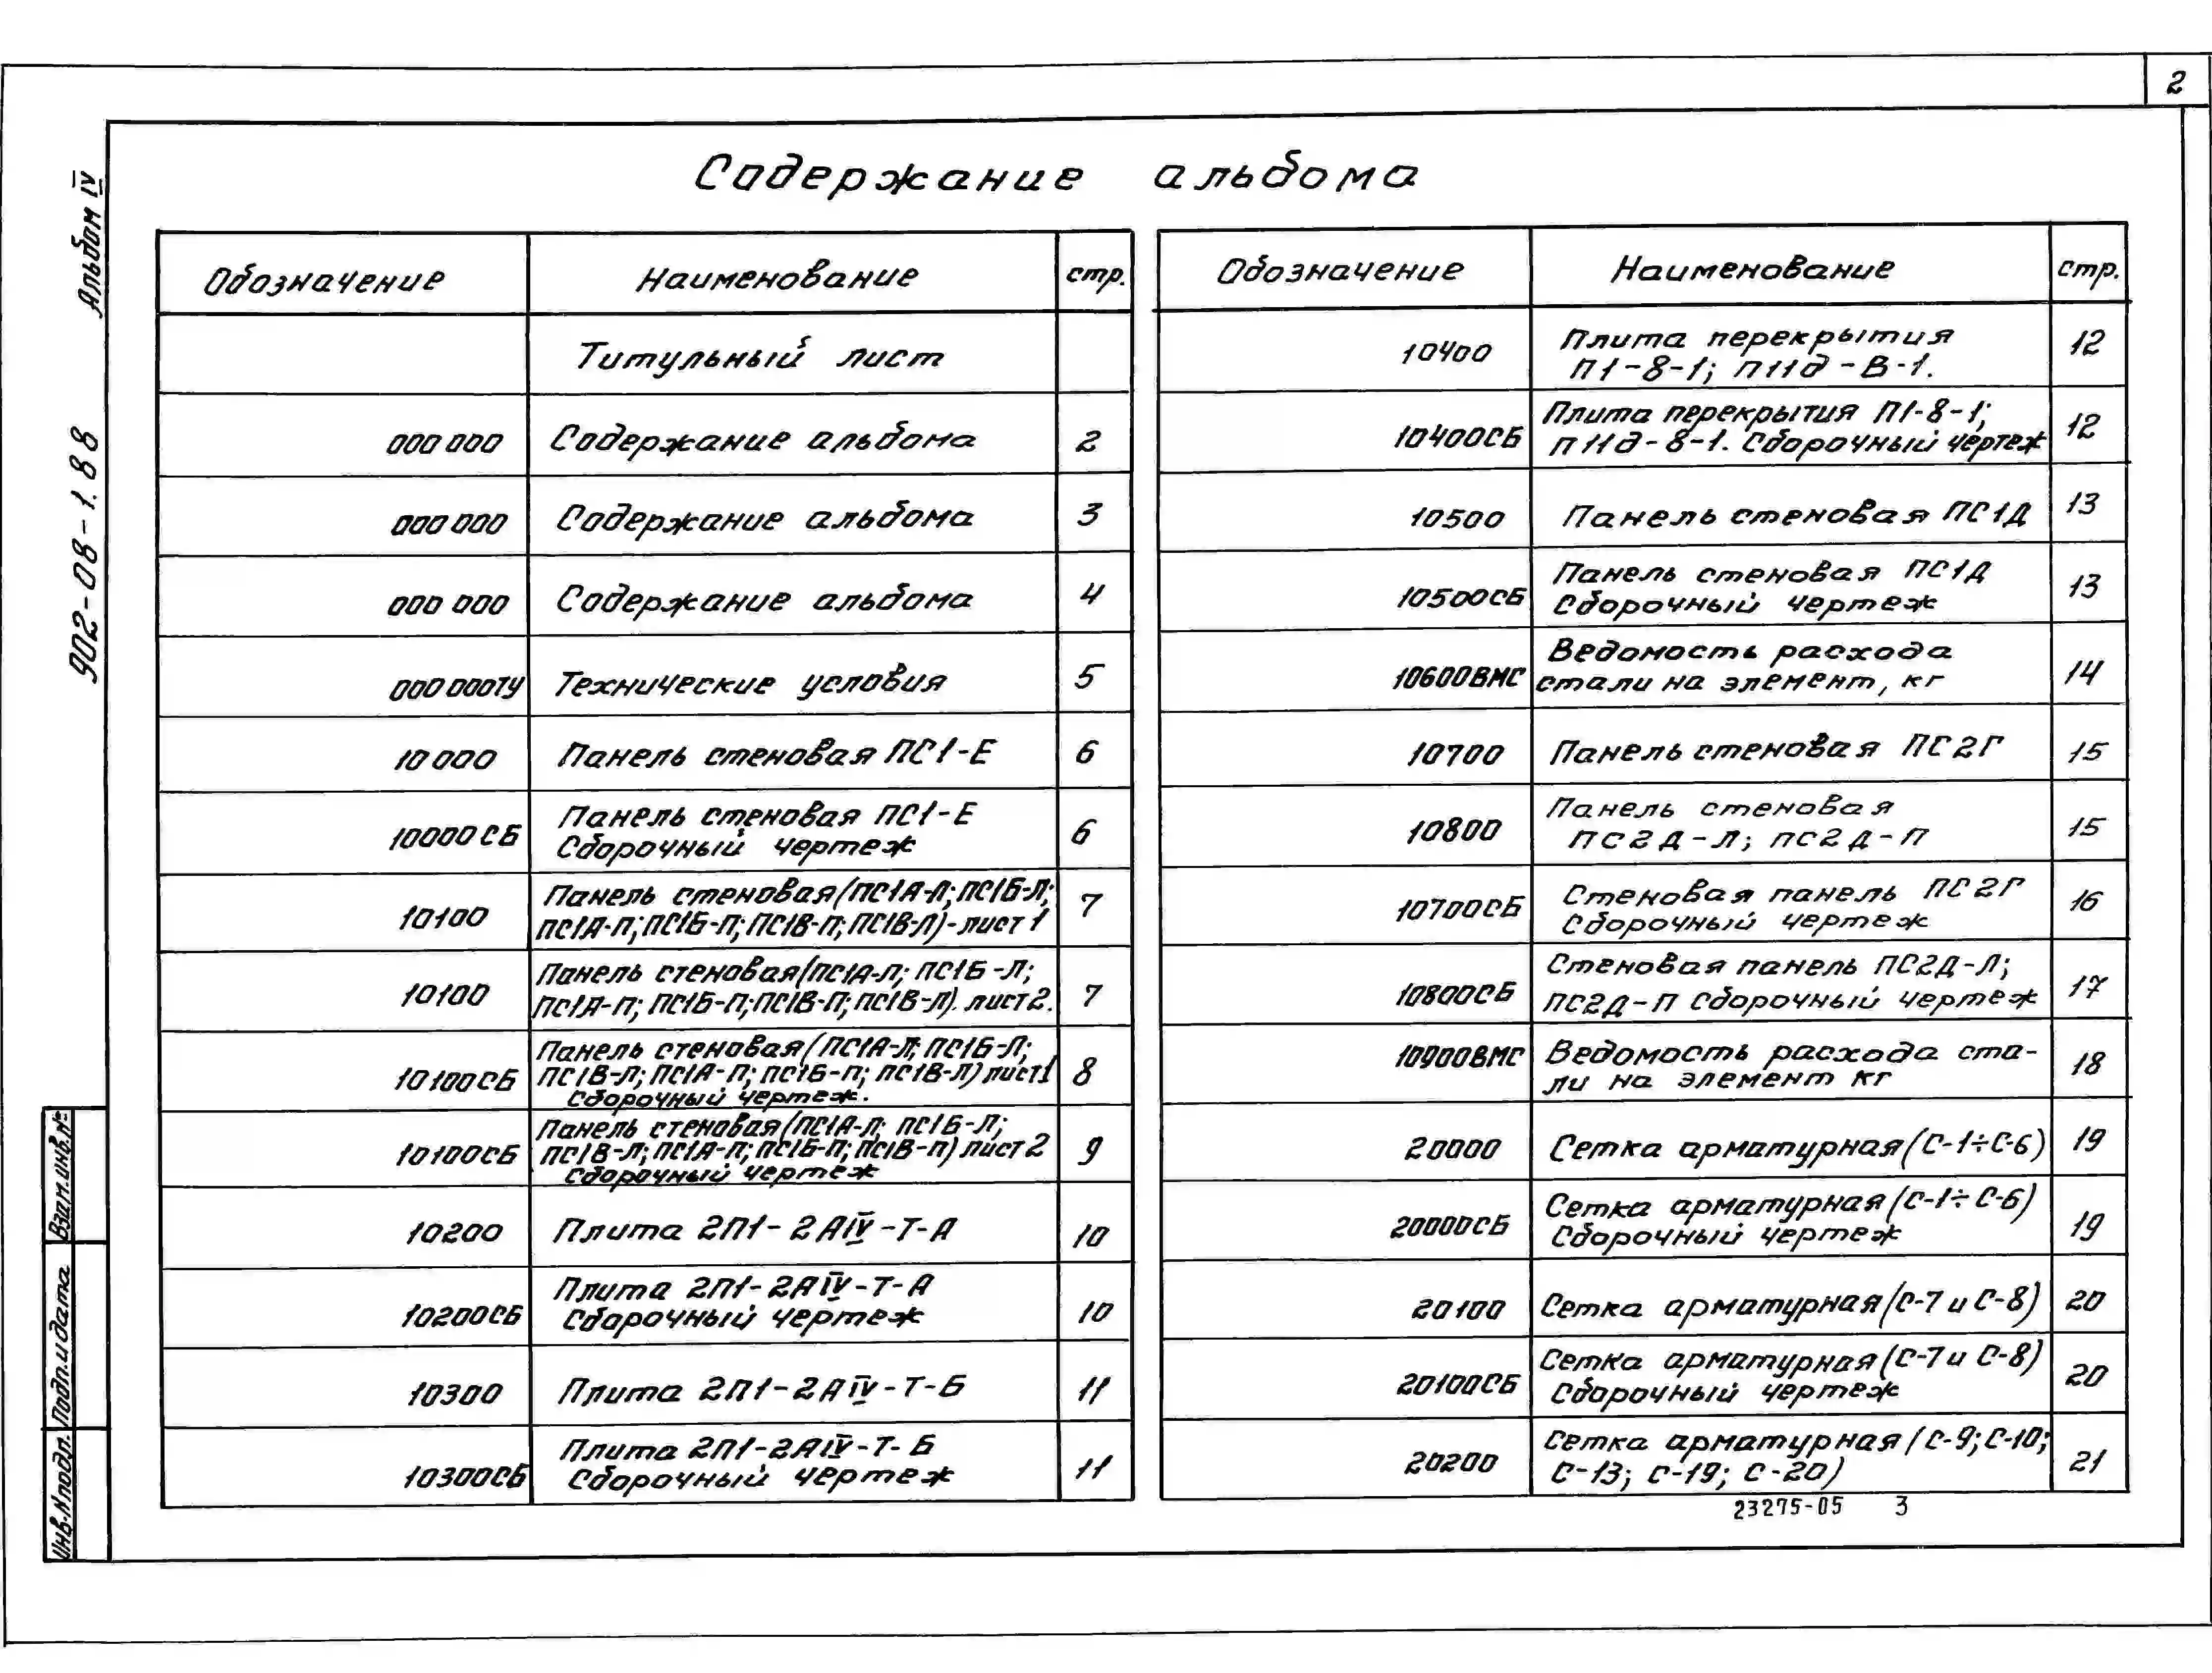 2
Альбом IV
902-08-1.88
Содержание альбома
Обозначение Наименование стр.
Титульный лист
000 000 Содержание альбома 2
000 000 Содержание альбома 3
000 000 Содержание альбома 4
000 000ТУ Технические условия 5
10 000 Панель стеновая ПС1-Е 6
10000СБ Панель стеновая ПС1-Е
Сборочный чертеж 6
10100 Панель стеновая (ПС1А-Л; ПС1Б-Л;
ПС1А-П; ПС1Б-П; ПС1В-П; ПС1В-Л)-лист 1 7
10100 Панель стеновая (ПС1А-Л; ПС1Б-Л;
ПС1А-П; ПС1Б-П; ПС1В-П; ПС1В-Л). лист 2. 7
10100СБ Панель стеновая (ПС1А-Л; ПС1Б-Л;
ПС1В-Л; ПС1А-П; ПС1Б-П; ПС1В-Л) лист 1 8
Сборочный чертеж.
10100СБ Панель стеновая (ПС1А-Л; ПС1Б-Л;
ПС1В-Л; ПС1А-П; ПС1Б-П; ПС1В-П) лист 2 9
Сборочный чертеж
10200 Плита 2П1-2АIV-Т-А 10
10200СБ Плита 2П1-2АIV-Т-А
Сборочный чертеж 10
10300 Плита 2П1-2АIV-Т-Б 11
10300СБ Плита 2П1-2АIV-Т-Б
Сборочный чертеж 11
Обозначение Наименование стр.
10400 Плита перекрытия
П1-8-1; П11д-В-1. 12
10400СБ Плита перекрытия П1-8-1;
П11д-8-1. Сборочный чертеж 12
10500 Панель стеновая ПС1Д 13
10500СБ Панель стеновая ПС1Д
Сборочный чертеж 13
10600ВМС Ведомость расхода
стали на элемент, кг 14
10700 Панель стеновая ПС2Г 15
10800 Панель стеновая
ПС2Д-Л; ПС2Д-П 15
10700СБ Стеновая панель ПС2Г
Сборочный чертеж 16
10800СБ Стеновая панель ПС2Д-Л;
ПС2Д-П Сборочный чертеж 17
10900ВМС Ведомость расхода ста-
ли на элемент кг 18
20000 Сетка арматурная (С-1÷С-6) 19
20000СБ Сетка арматурная (С-1÷С-6)
Сборочный чертеж 19
20100 Сетка арматурная (С-7 и С-8) 20
20100СБ Сетка арматурная (С-7 и С-8)
Сборочный чертеж 20
20200 Сетка арматурная (С-9; С-10;
С-13; С-19; С-20) 21
23275-05 3
Взам.инв.№
Подп.и дата
Инв.N подл.